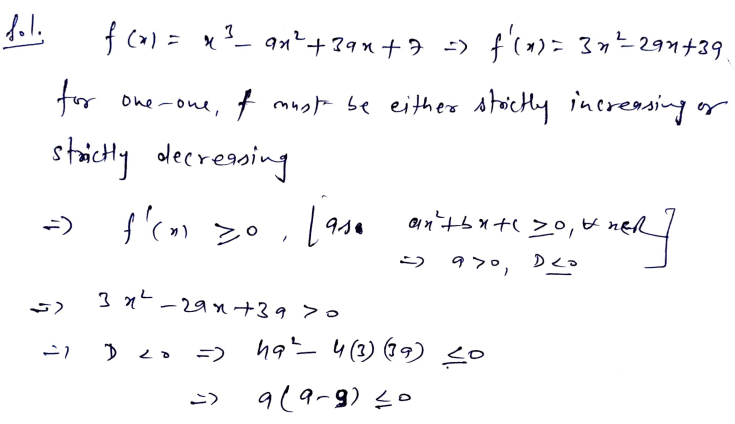 Sol. f(x) = x³ - ax² + 3ax + 7 => f'(x) = 3x² - 2ax + 3a
for one-one, f must be either strictly increasing or
strictly decreasing
=> f'(x) ≥ 0, [as ax² + bx + c ≥ 0, ∀ x∈R
=> a > 0, D ≤ 0]
=> 3x² - 2ax + 3a > 0
=> D < 0 => 4a² - 4(3)(3a) ≤ 0
=> a(a-9) ≤ 0